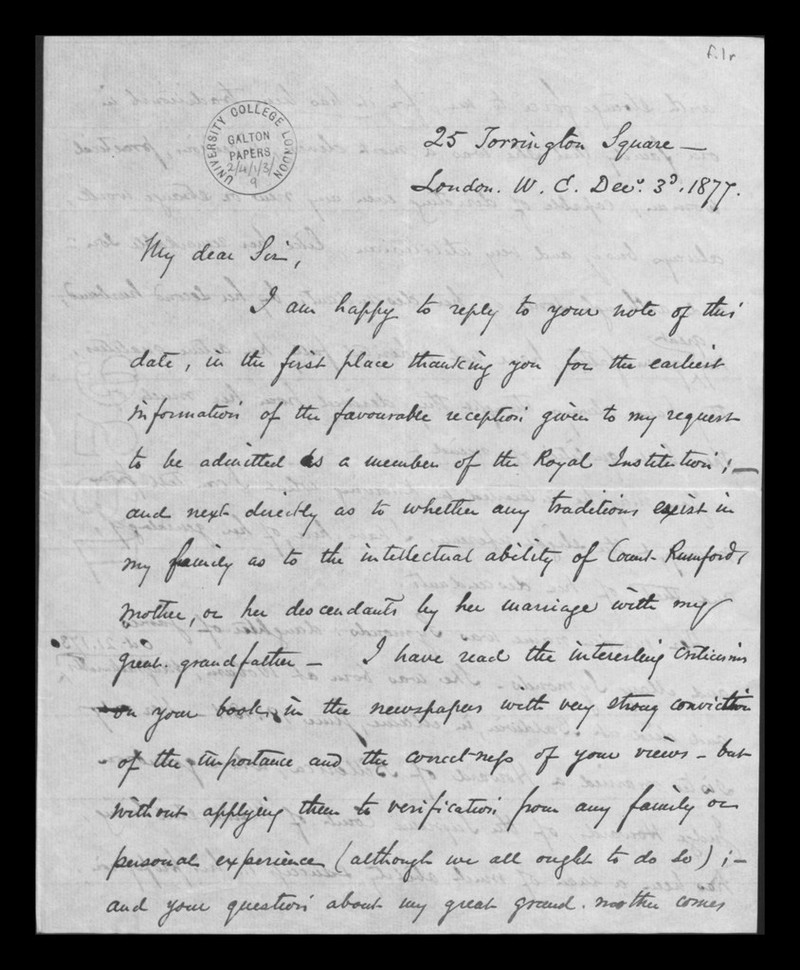 f.1r
UNIVERSITY COLLEGE LONDON
GALTON
PAPERS
2/4/1/3/
9
25 Torrington Square —
London. W. C. Decr. 3d. 1877.
My dear Sir,
I am happy to reply to your note of this
date, in the first place thanking you for the earliest
information of the favourable reception given to my request
to be admitted as a member of the Royal Institution; —
and next directly as to whether any traditions exist in
my family as to the intellectual ability of Count Rumford's
mother, or her descendants by her marriage with my
great-grandfather — I have read the interesting criticisms
on your books, in the newspapers with very strong conviction
of the importance and the correctness of your views — but
without applying them to verification from any family or
personal experience (although we all ought to do so); —
and your question about my great grand-mother comes